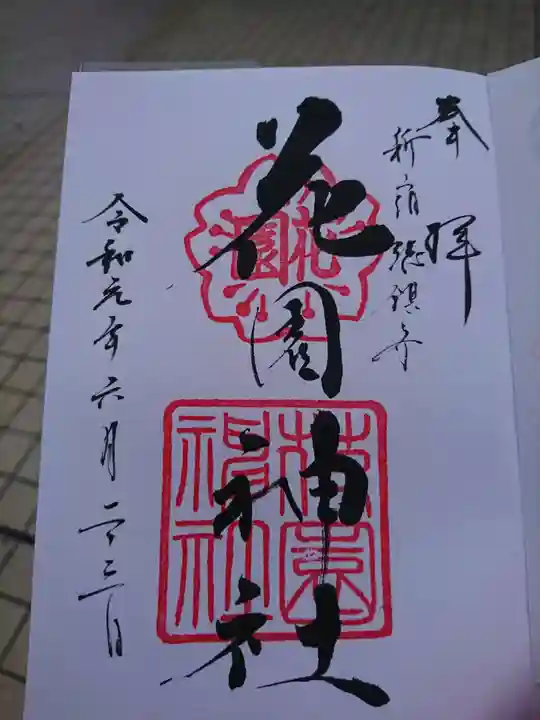 奉拝
新宿総鎮守
花園
花園神社
花園神社
令和元年六月二十三日